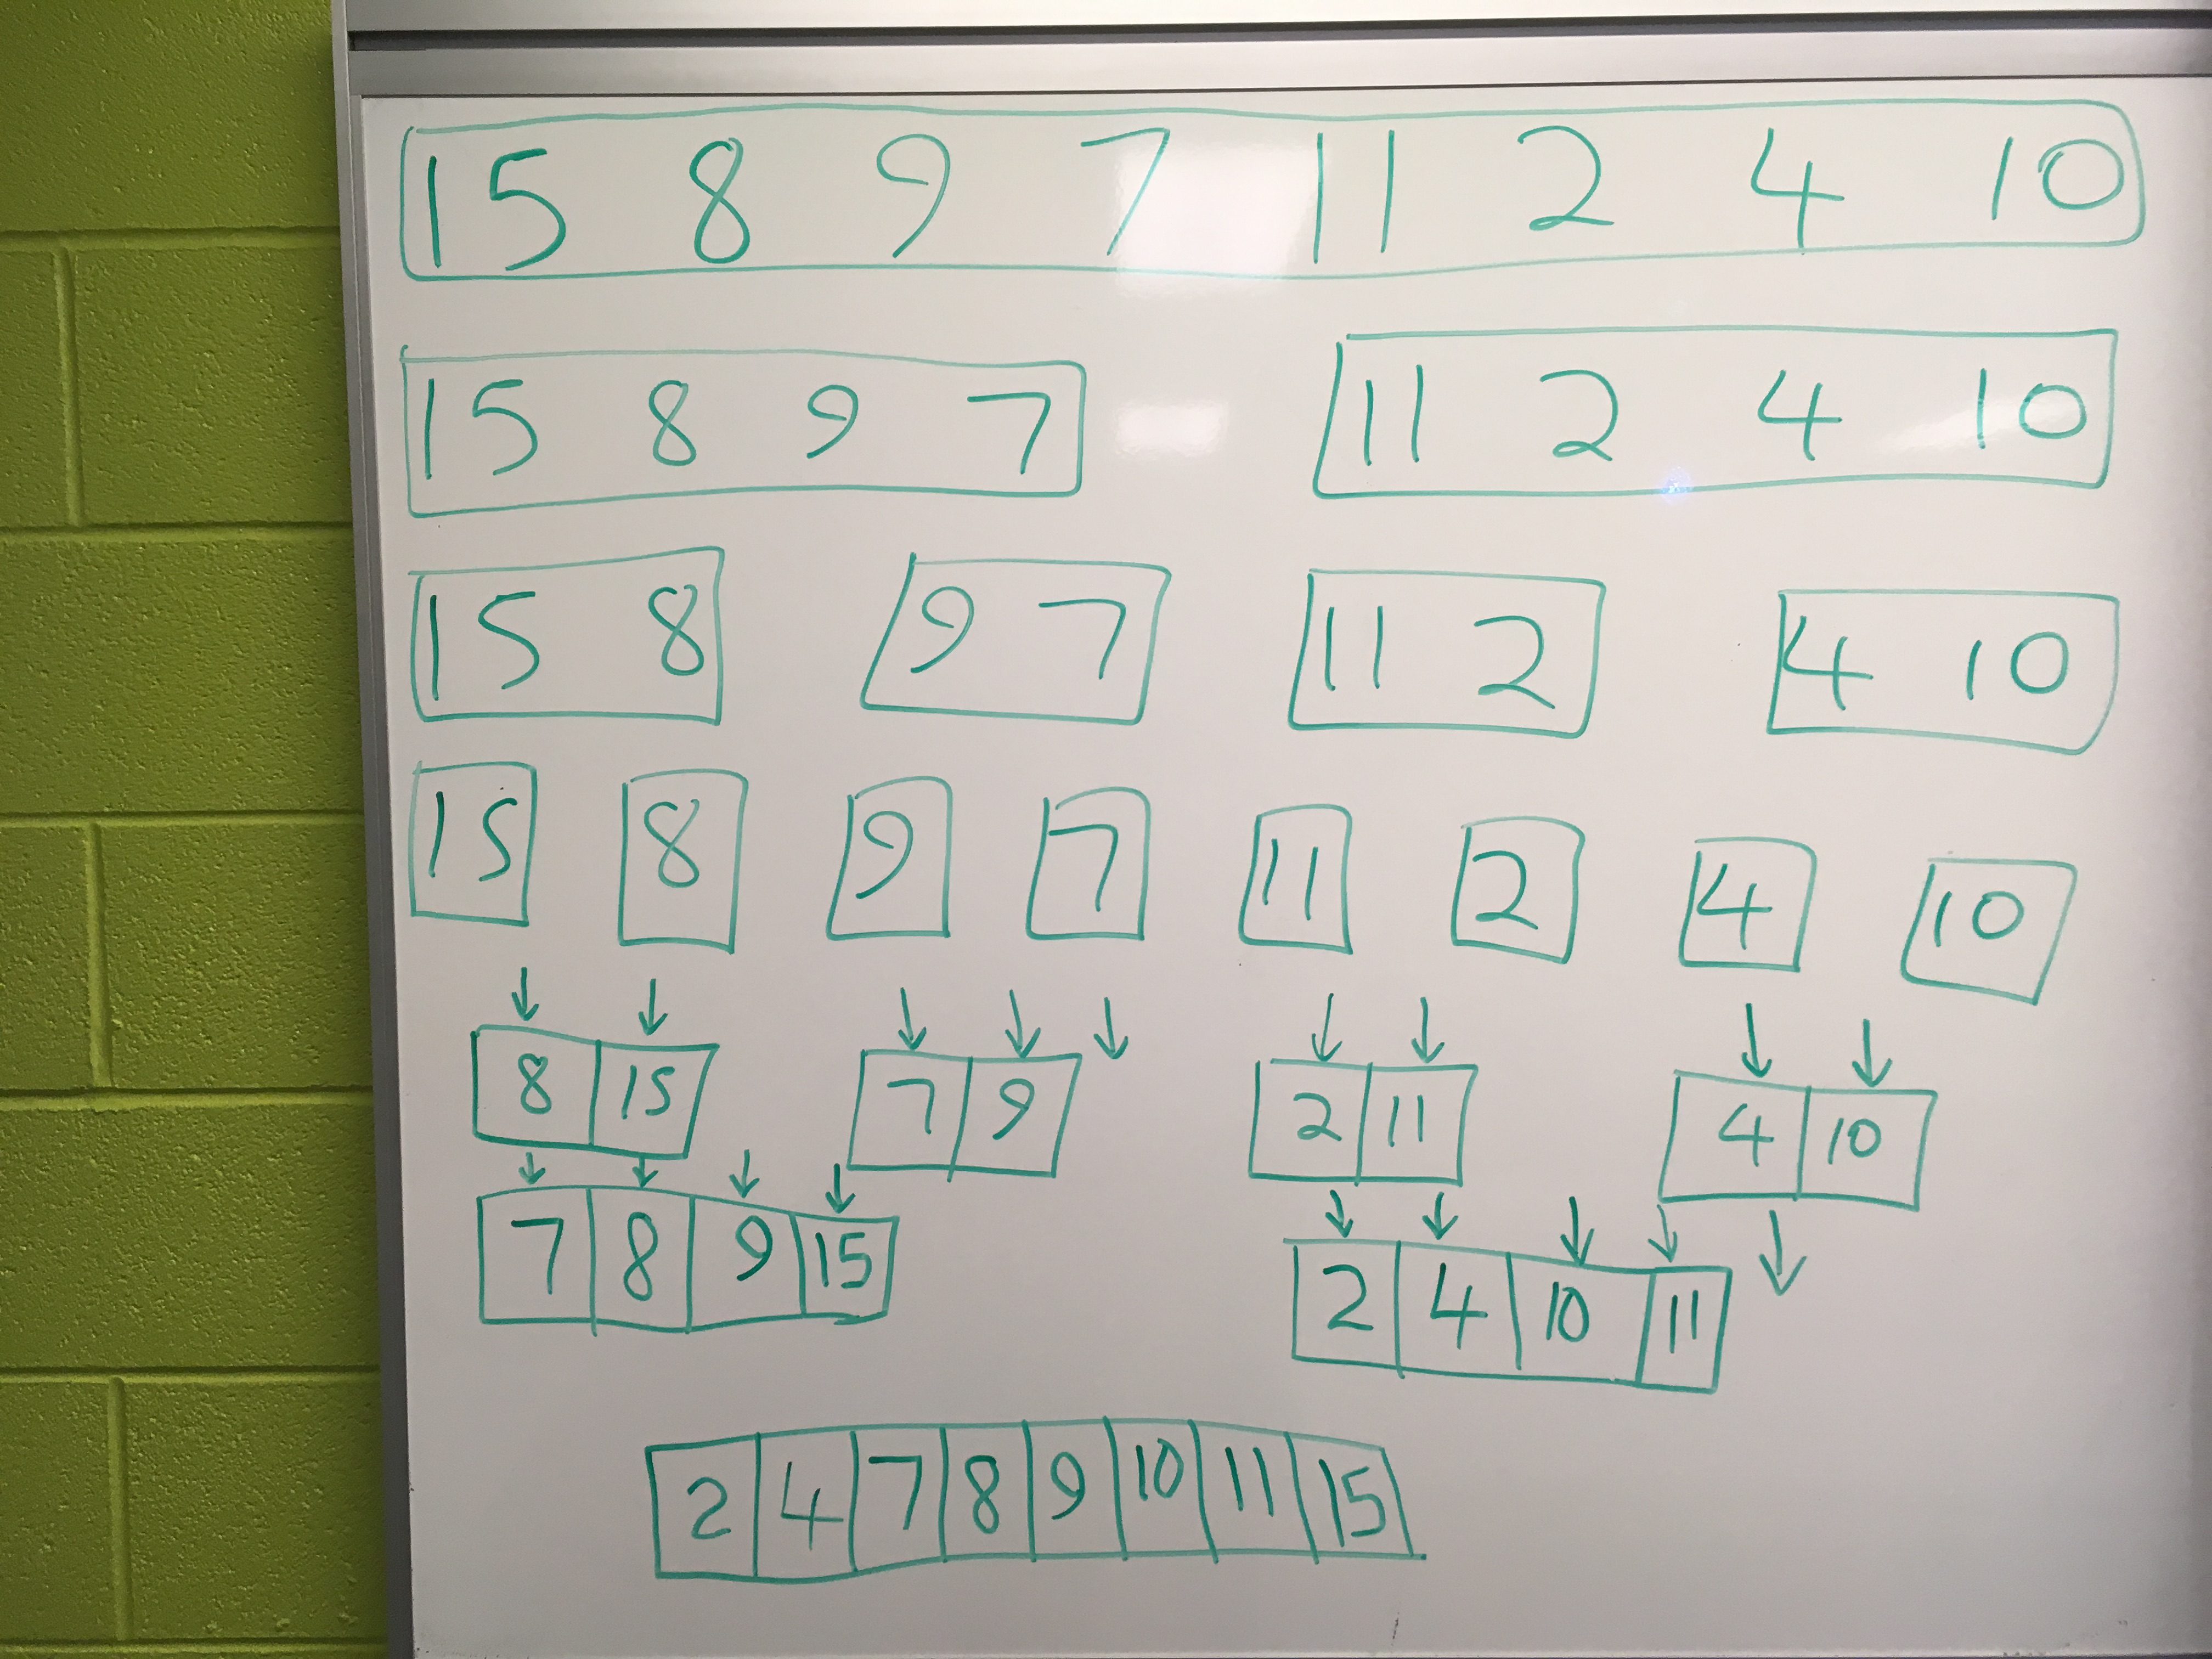 15 8 9 7 11 2 4 10
15 8 9 7 11 2 4 10
15 8 9 7 11 2 4 10
15 8 9 7 11 2 4 10
8 15 7 9 2 11 4 10
7 8 9 15 2 4 10 11
2 4 7 8 9 10 11 15